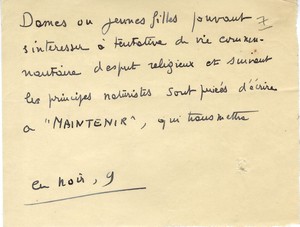 Dames ou jeunes filles pouvant
s'intéresser à tentative de vie commu-
nautaire d'esprit religieux et suivant
les principes naturistes sont priées d'écrire
a "MAINTENIR", qui transmettra
en noir, 9